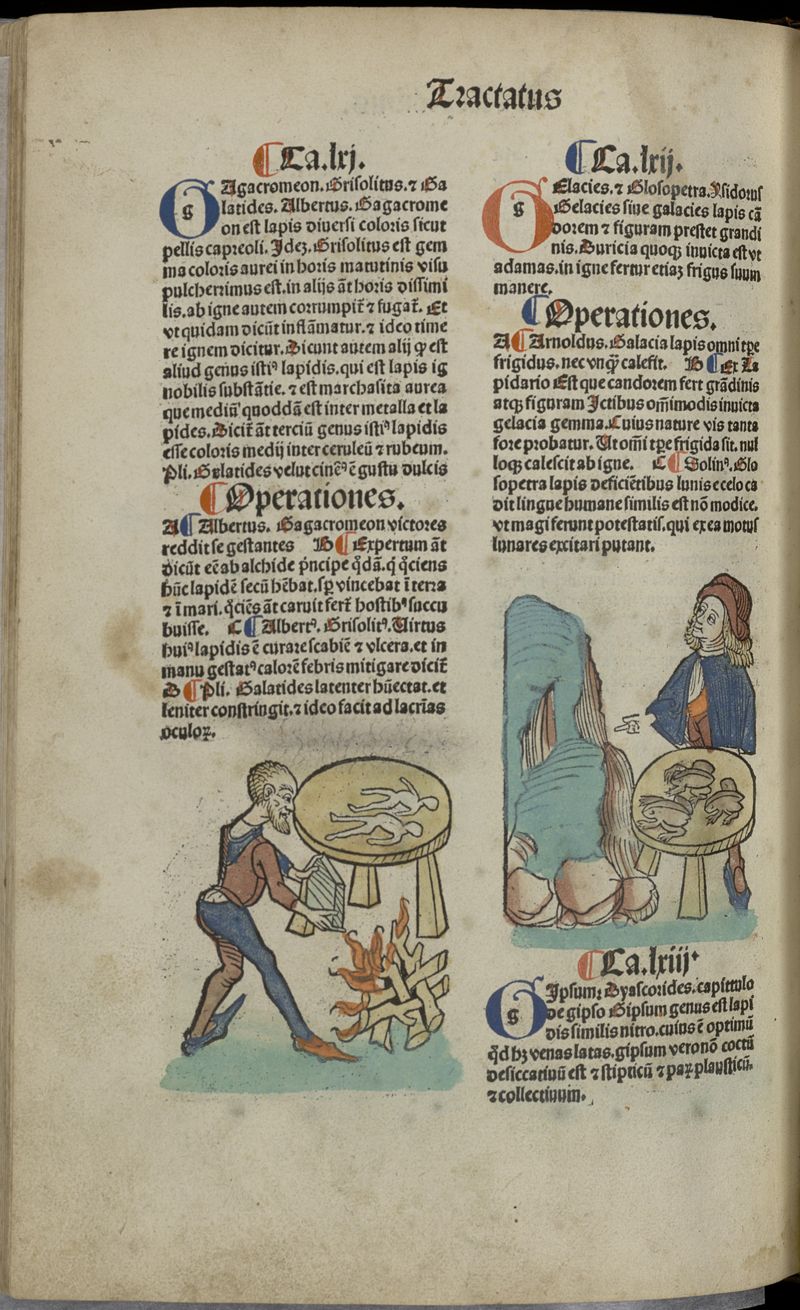 Tractatus
¶ Ca.lxj.
G g Agacromeon.Grisolitus.⁊ Ga
latides. Albertus. Gagacrome
on est lapis diuersi coloris sicut
pellis capreoli. Idez.Grisolitus est gem
ma coloris aurei in horis matutinis visu
pulcherrimus est.in alijs āt horis dissimi
lis.ab igne autem corrumpit̃ ⁊ fugat̃. Et
vt quidam dicūt inflāmatur.⁊ ideo time
re ignem dicitur.Dicunt autem alij ꝙ est
aliud genus istiꝰ lapidis.qui est lapis ig
nobilis substātie.⁊ est marchasita aurea
que mediū quoddā est inter metalla et la
pides.Dicit̃ āt terciū genus istiꝰ lapidis
esse coloris medij inter ceruleū ⁊ rubeum.
Pli. Galatides velut cinēꝰ ē gustu dulcis
¶ Operationes.
A ¶ Albertus. Gagacromeon victores
reddit se gestantes B ¶ Expertum āt
dicūt eē ab alchide p̄ncipe q̄dā.q̄ q̄ciens
hūc lapidē secū hēbat.sp̱ vincebat ī terra
⁊ ī mari.q̄ciēs āt caruit fert̃ hostibꝰ succu
buisse. C ¶ Albertꝰ. Grisolitꝰ.Uirtus
huiꝰ lapidis ē curare scabiē ⁊ vlcera.et in
manu gestatꝰ calorē febris mitigare dicit̃
D ¶ Pli. Galatides latenter hūectat.et
leniter constringit.⁊ ideo facit ad lacrīas
oculoꝝ.
¶ Ca.lxij.
G g Elacies.⁊ Glosopetra.Ysidorus
Gelacies siue galacies lapis cā
dorem ⁊ figuram prestet grandi
nis.Duricia quoqꝫ inuicta est vt
adamas.in igne fertur etiaz frigus suum
manere.
¶ Operationes.
A ¶ Arnoldus. Galacia lapis omni tꝑe
frigidus.nec vnqꝫ̄ calefit. B ¶ Ex La
pidario Est que candorem fert grādinis
atqꝫ figuram Ictibus om̄imodis inuicta
gelacia gemma.Cuius nature vis tanta
fore probatur. Ut om̄i tꝑe frigida sit.nul
loqꝫ calescit ab igne. C ¶ Solinꝰ.Glo
sopetra lapis deficiētibus lunis e celo ca
dit lingue humane similis est nō modice.
vt magi ferunt potestatis.qui ex ea motus
lunares excitari putant.
¶ Ca.lxiij
G g Ipsum: Dyascorides.capittulo
de gipso Gipsum genus est lapi
dis similis nitro.cuius ē optimū
q̄d hꝫ venas latas.gipsum veronō coctū
desiccatiuū est ⁊ stipticū ⁊ paꝝ plausticū.
⁊ collectiuum.